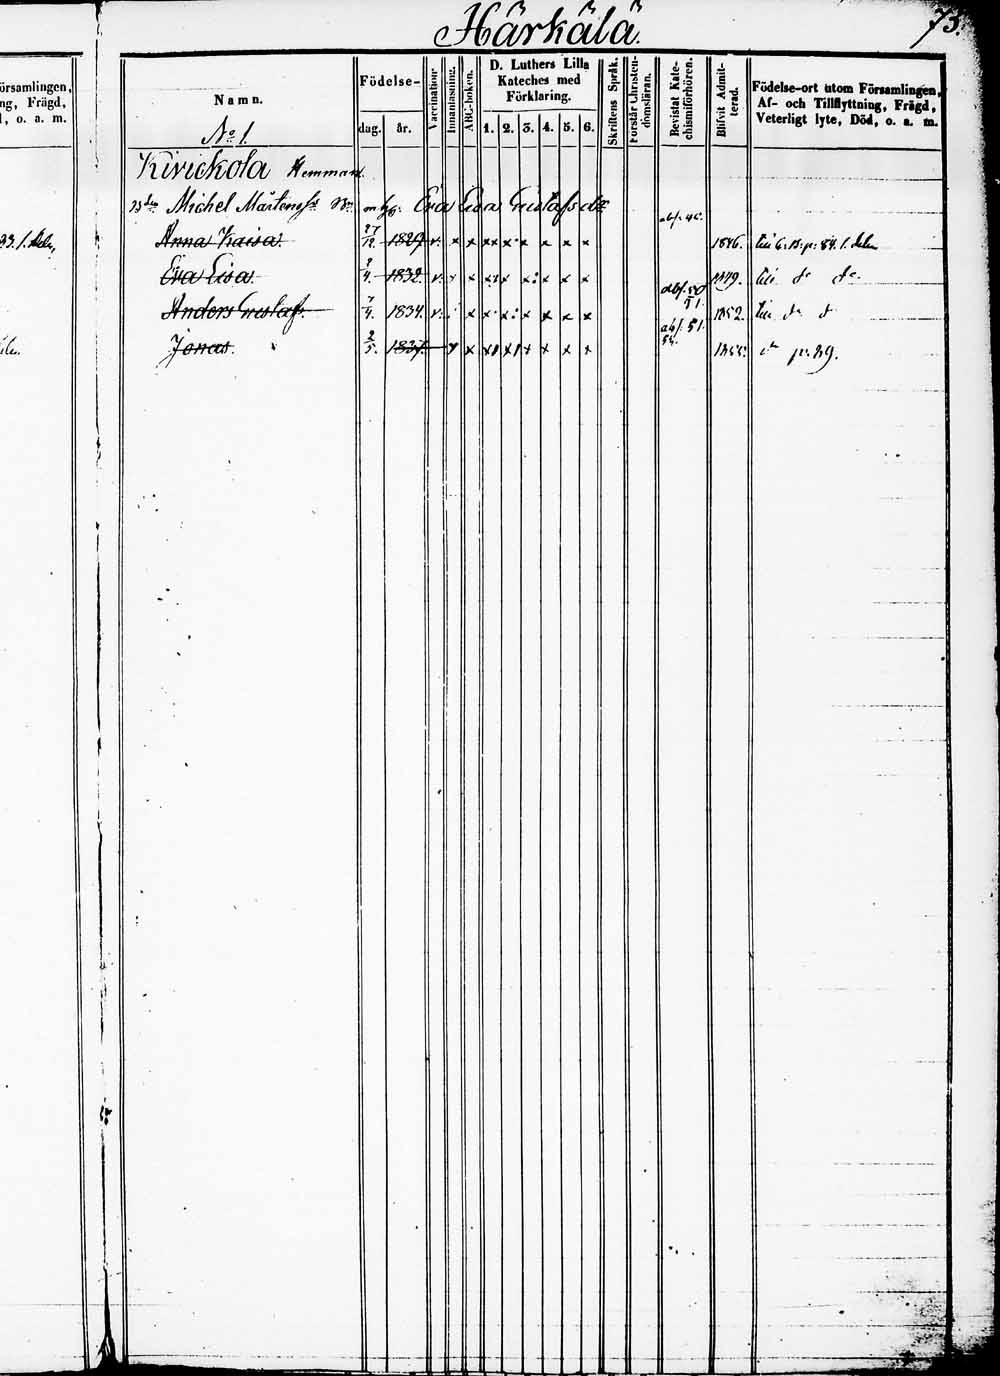 Härkälä.
73.
örsamlingen,
ng, Frägd,
l, o. a. m.
Namn.
Födelse-
dag. år.
Vaccination.
Innanläsning.
ABC-boken.
D. Luthers Lilla
Kateches med
Förklaring.
1. 2. 3. 4. 5. 6.
Skriftens Språk.
Förstår Christen-
domsläran.
Bevistat Kate-
chismiförhören.
Blifvit Admit-
terad.
Födelse-ort utom Församlingen,
Af- och Tillflyttning, Frägd,
Veterligt lyte, Död, o. a. m.
No 1.
Kivickola Hemman.
Michel Mårtenss. Eva Lisa Gustafs dr
Anna Kaisa 27/12. 1829 v. x x x x x x x x abf. 45. 1846. 84. 1. delen
Eva Lisa. 2/4. 1832. v. x x x x x x x abf. 50 1849. do do
51.
Anders Gustaf. 7/4. 1834. v. x x x x x x x abf. 51. 1852. do d
Jonas. 2/5. 1837. x x x x x x x x 1855. do p: 29.